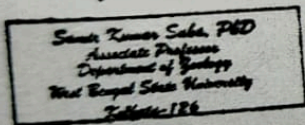 Samir Kumar Saha, PhD
Associate Professor
Department of Zoology
West Bengal State University
Kolkata-126